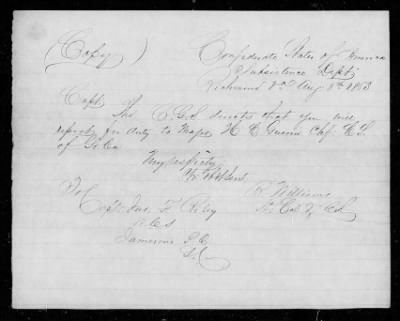 (Copy)
Confederate States of America
Subsistence Dept
Richmond Va Aug 8th 1863
Capt
The C.G.S. directs that you will
report for duty to Major H C Guerin Chf C.S.
of So Ca
Very respectfy
Yr Obt Servt
R Williams
To
Capt Jno F
A C S
Jamesons P.O.
S.C.